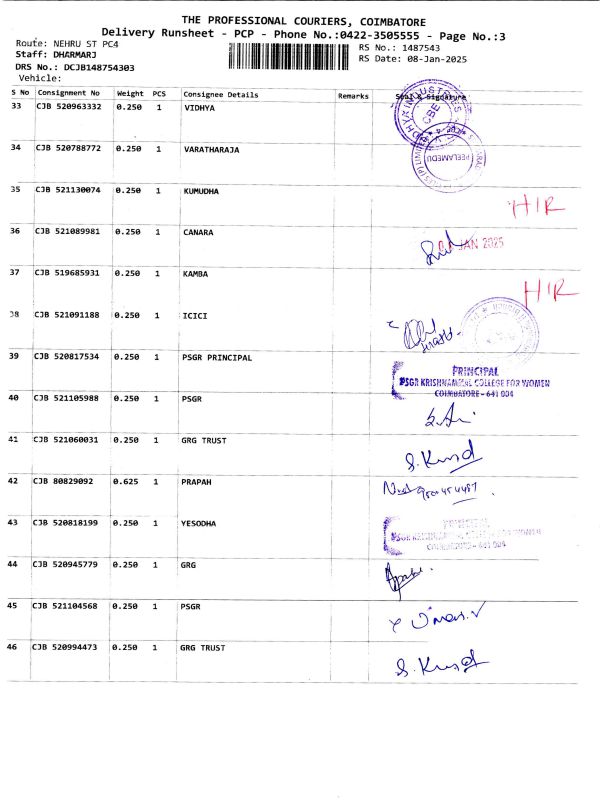 THE PROFESSIONAL COURIERS, COIMBATORE
Delivery Runsheet - PCP - Phone No.:0422-3505555 - Page No.:3
Route: NEHRU ST PC4
RS No.: 1487543
Staff: DHARMARJ
RS Date: 08-Jan-2025
DRS No.: DCJB148754303
Vehicle:
S No Consignment No Weight PCS Consignee Details Remarks Seal & Signature
33 CJB 520963332 0.250 1 VIDHYA
CBE
34 CJB 520788772 0.250 1 VARATHARAJA
PEELAMEDU
35 CJB 521130074 0.250 1 KUMUDHA
HIR
36 CJB 521089981 0.250 1 CANARA
JAN 2025
37 CJB 519685931 0.250 1 KAMBA
HIR
38 CJB 521091188 0.250 1 ICICI
39 CJB 520817534 0.250 1 PSGR PRINCIPAL
PRINCIPAL
PSGR KRISHNAMMAL COLLEGE FOR WOMEN
COIMBATORE - 641 004
40 CJB 521105988 0.250 1 PSGR
41 CJB 521060031 0.250 1 GRG TRUST
42 CJB 80829092 0.625 1 PRAPAH
43 CJB 520818199 0.250 1 YESODHA
PRINCIPAL
PSGR KRISHNAMMAL COLLEGE FOR WOMEN
COIMBATORE - 641 004
44 CJB 520945779 0.250 1 GRG
45 CJB 521104568 0.250 1 PSGR
46 CJB 520994473 0.250 1 GRG TRUST